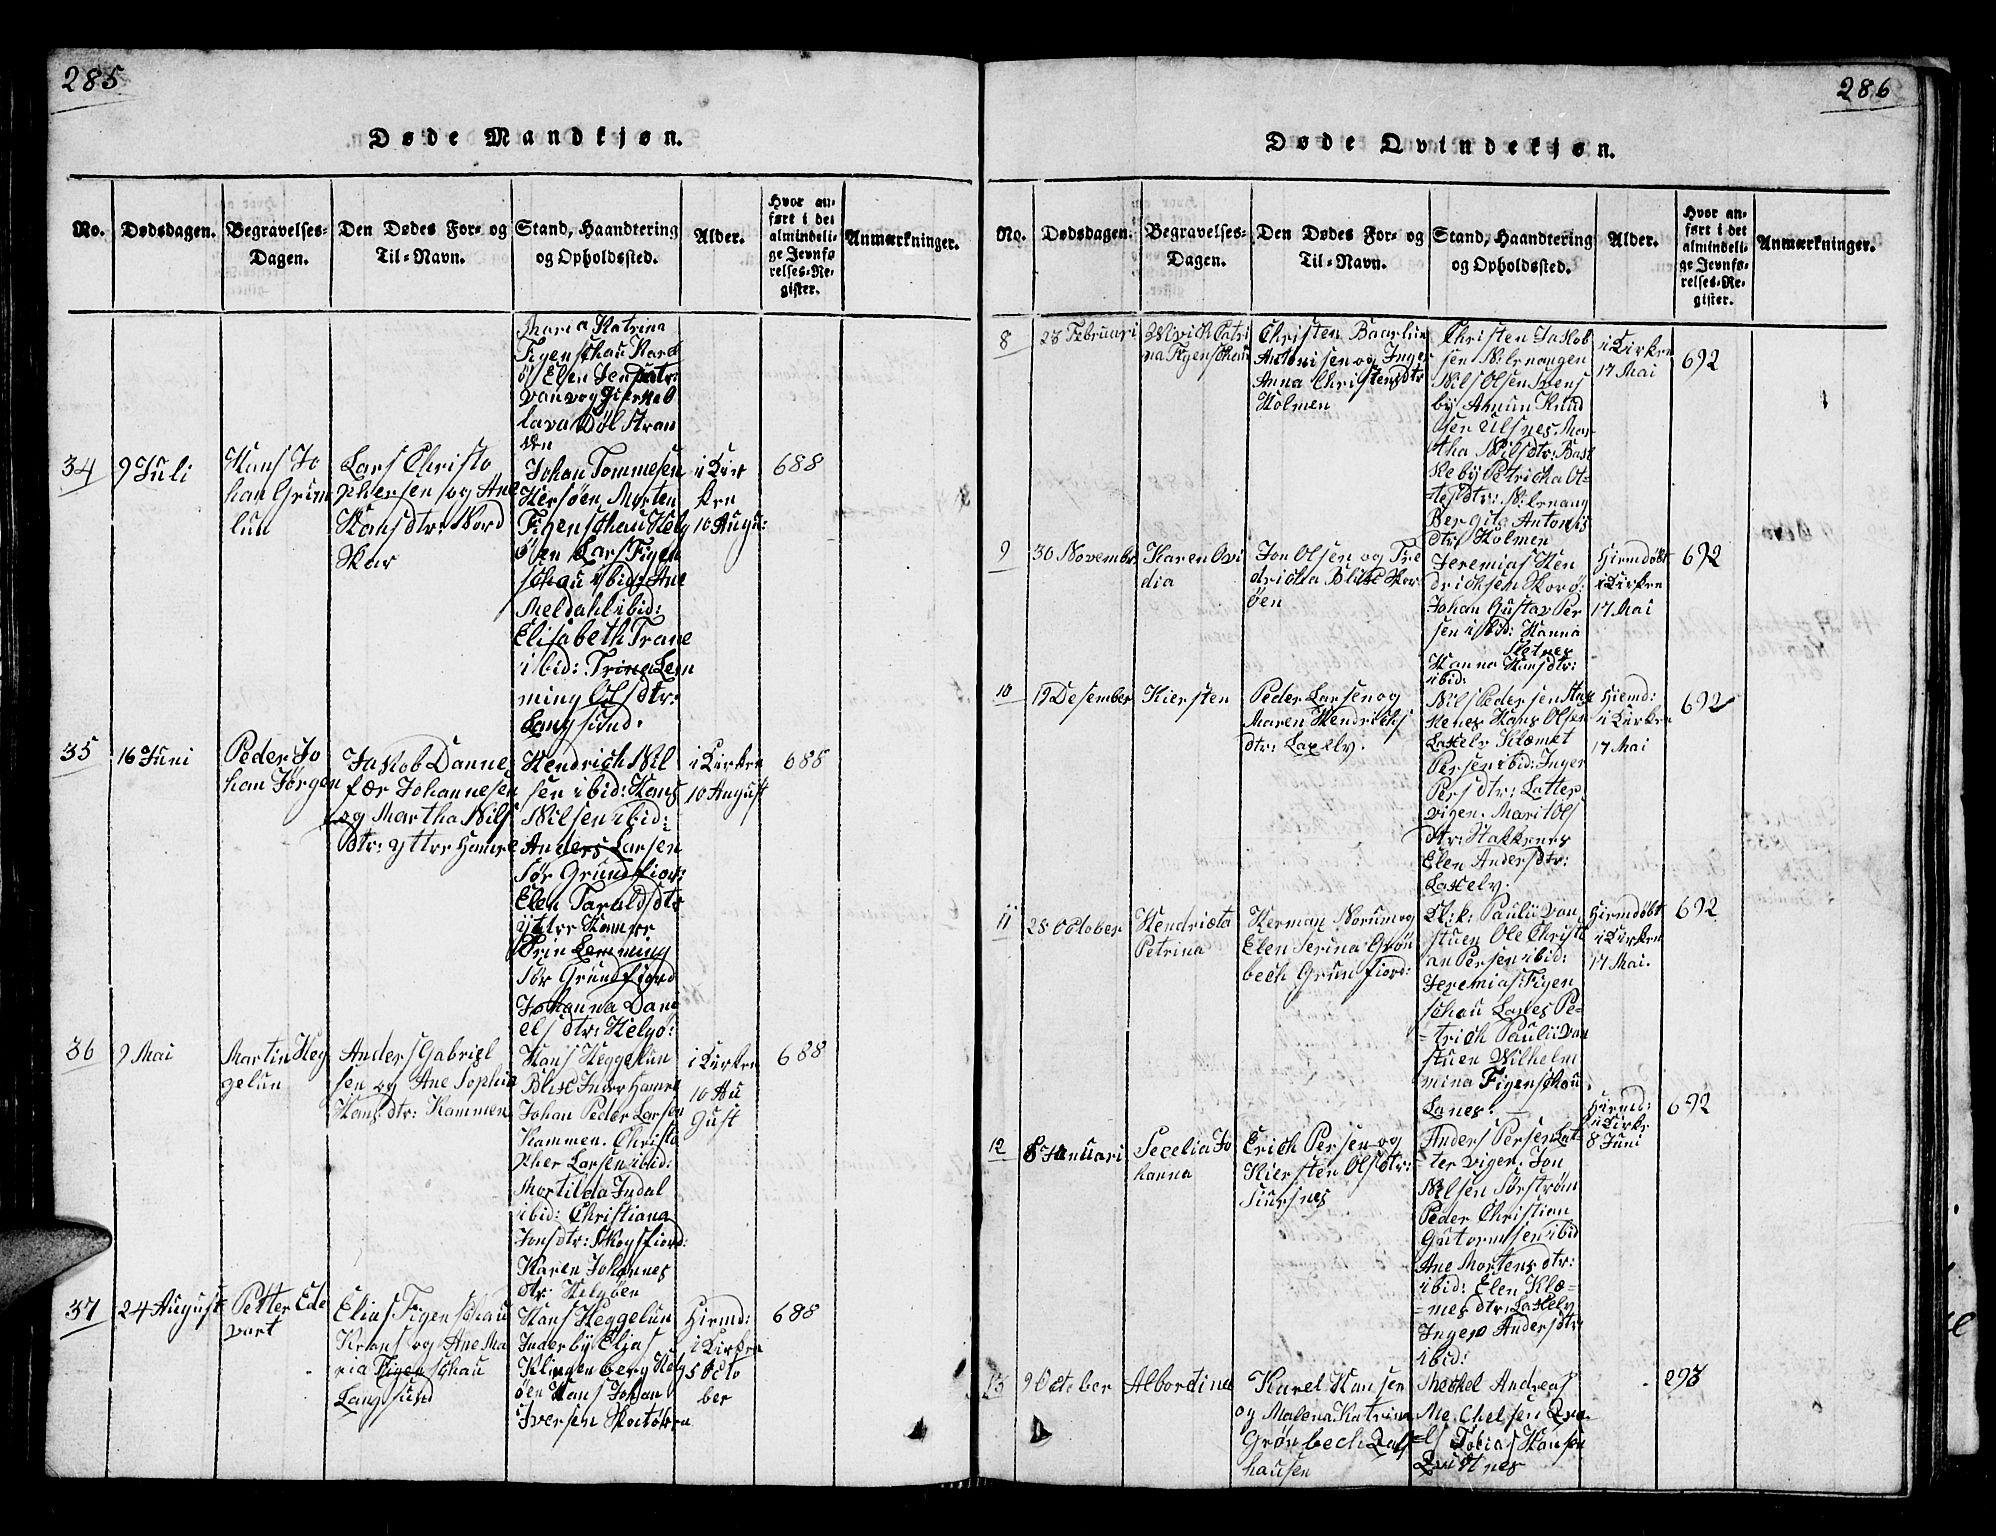 285
Døde Mandkjøn.
No. Dødsdagen. Begravelses-Dagen. Den Dødes For- og Til-Navn. Stand, Haandtering og Opholdssted. Alder. Hvor anført i det almindelige Jevnførelses-Register. Anmærkninger.
Maria Katrina
Figenschau Karls
öÿ Elsen Jens datr:
Lava Döl Stran
den
34 9 Juli
Hans Jo
han Grün
lun
Lars Christo
phersens og Ane
Hansdtr: Nord
Skar
Johan Tommesen
Hersöen, Morten
Figenschau Helg
öen Lars Figen
schau ibid: Ane
Meldahl ibid:
Elisabeth Trane
ibid: Trine Lem
ming Olsdtr:
Langsund:
i Kir
ken
10 Augu:
688
35 16 Juni
Peder Jo
han Jörgen
Jakob Danne
fær Johannesen
og Martha Nils
dtr: ytter Hamre
Hendrich Nil
sen ibid: Hans
Nilsen ibid:
Anders Larsen
Sör Grundfior:
Elen Taraldsdtr
ytter Hamre
Trin Lemming
Sör Grundfiord
Johanna Dani
elsdtr: Helgö:
i Kirken
10 August
688
36 9 Mai
Martin Heg
gelun
Anders Gabriel
sen og Ane Sophia
Hansdtr: Hammen
Hans Heggelun
Blix Inder Hamre
Johan Peder Larsen
Hammen. Christo
pher Larsen ibid:
Mortilda Indal
ibid: Christiana
Jonsdtr: Skogsfiord:
Karen Johannes
dtr: Helgöen
i Kirken
10 Au
Gust
688
37 24 August
Petter Ede
vart
Elias Figenschau
Krans og Ane Ma
ria Figenschau
Langsund
Hans Heggelun
Inderby Elias
Klingenberg Helg
öen Hans Johan
Iversen Skotören
Hiemd:
i Kirken
5 Octo
ber
688
286
Døde Qvindekjøn.
No. Dødsdagen. Begravelses-Dagen. Den Dødes For- og Til-Navn. Stand, Haandtering og Opholdssted. Alder. Hvor anført i det almindelige Jevnførelses-Register. Anmærkninger.
8 28 Februari
Ulrich Catri
na Figenschau
Christen Baarlun
Antonisen og Inger
Anna Christensdtr
Holmen
Christen Jakob
sen Nilsenangen
Nils Olsen Svens
by Amun Knud
sen Ulsnes. Mar
tha Nilsdtr: Bak
keby Petricha Ot-
tesdtr:
Bergita Antonis
dtr: Holmen
i Kirken
17 Mai
692
9 30 November
Karen Ovi
dia
Jon Olsen og Fre
dricka Blix Kor
öen
Jeremias Hen
drichsen Korö:
Johan Gustav Per
sen ibid: Hanna
Sletnes
Hanna Hansdtr:
ibid:
Hiemdöbt
i Kirken
17 Mai
692
10 19 Desember
Kiersten
Peder Larsen og
Maren Hendrichs
dtr: Laxelv.
Nils Pedersen Stak
kenes Hans Olsen
Laxelv Klæmet
Persen ibid: Inger
Persdtr: Latter
vigen. Marit Ols
dtr: Stakkenes
Elen Andersdtr:
Laxelv.
Hiemd:
i Kirken
17 Mai
692
11 28 October
Hendricta
Petrina
Herman Norum og
Elen Serina Grön
bech Grunfiord:
Kl:k: Paulii van
stuen Ole Christi
an Persen ibid:
Jeremias Figen
schau Lanes Pe-
trich Paulii van
stuen Wilhelm
mina Figenschau
Lanes.
Hiemdöbt
i Kirken
17 Mai.
692
12 8 Januari
Secelia Jo
hanna
Erich Persen og
Kiersten Olsdtr:
Siursnes
Anders Persen Lat-
tervigen. Jon
Nilsen Sörström
Peder Christian
Gutormsen ibid
Ane Mortensdtr:
ibid: Elen Klæ-
mesdtr: Laxelv
Inger Andersdtr
ibid:
Hiemd:
i Kirke
8 Juni
692
13 9 October
Albertine
Karel Hansen
og Malena Katrina
Grönbech Qals
hausen
Mekkel Andreas
Mechelsen Qva-
ls Tobias Hansen
Qvitnes
293